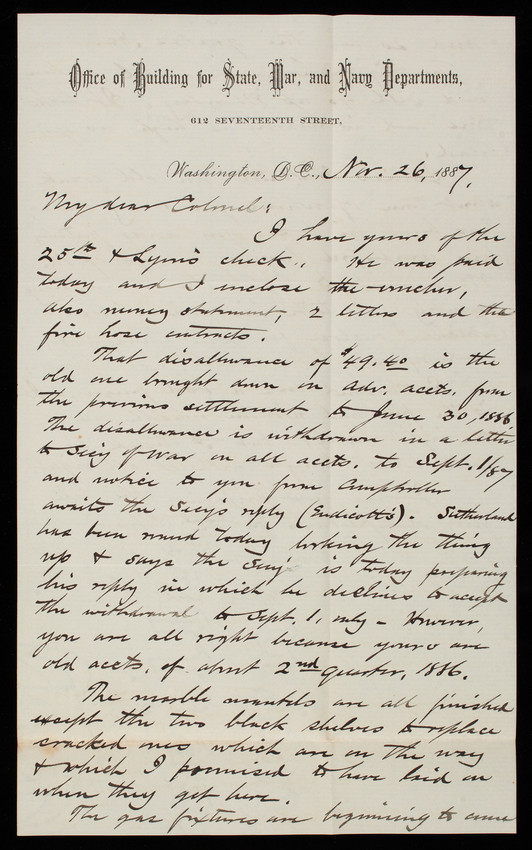 Office of Building for State, War, and Navy Departments,
612 SEVENTEENTH STREET.
Washington, D.C., Nov. 26, 1887,
My dear Colonel:
I have yours of the
25th & Lyon's check. He was paid
today and I inclose the voucher,
also money statement, 2 letters and the
fire hose contracts.
That disallowance of $49.40 is the
old one brought down on adv. accts. from
the previous settlement to June 30, 1886.
The disallowance is withdrawn in a letter
to Sec'y of War on all accts. to Sept. 1/87
and notice to you from Comptroller
awaits the Sec'y's reply (Endicott's). Sutherland
has been round today looking the thing
up & says the Sec'y is today preparing
his reply in which he declines to accept
the withdrawal to Sept. 1, only - However,
you are all right because yours are
old accts. of about 2nd quarter, 1886.
The marble mantels are all finished
except the two black shelves to replace
cracked ones which are on the way
& which I promised to have laid on
when they get here.
The gas fixtures are beginning to come